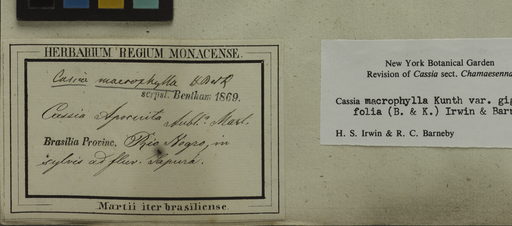 HERBARIUM REGIUM MONACENSE.
Cassia macrophylla
scrpsit. Bentham 1869.
Cassia Apoucouita Aubl. Mart.
Brasilia Provinc. Rio Negro, in
sylvis ad fluv. Japurá.
Martii iter brasiliense.
New York Botanical Garden
Revision of Cassia sect. Chamaesenna
Cassia macrophylla Kunth var. gig
folia (B. & K.) Irwin & Barn
H. S. Irwin & R. C. Barneby